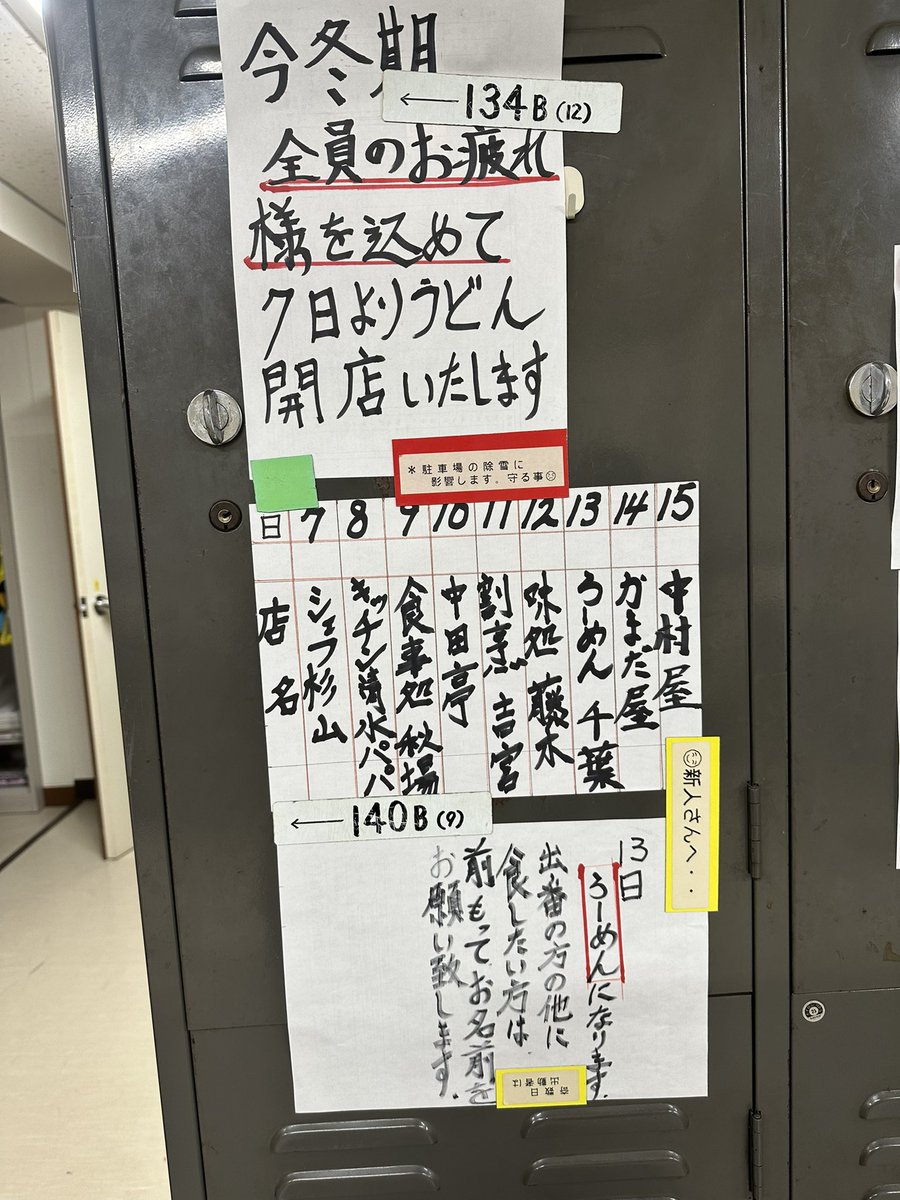 今冬期
←134B(12)
全員のお疲れ
様を込めて
7日よりうどん
開店いたします
*駐車場の除雪に
影響します。守る事
日 7 8 9 10 11 12 13 14 15
店名
シェフ杉山
キッチン清水パパ
食事処 秋場
中田亭
割烹 吉宮
味処 藤木
うーめん 千葉
かまだ屋
中村屋
新人さんへ・・
←140B(9)
13日
うーめんになります。
出番の方の他に
食したい方は
前もってお名前を
お願い致します。
奇数日
出勤者は